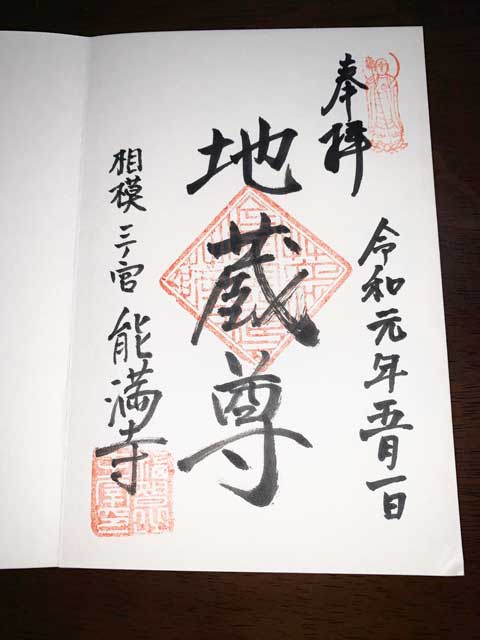 奉拝
令和元年五月一日
地蔵尊
相模三ノ宮 能満寺